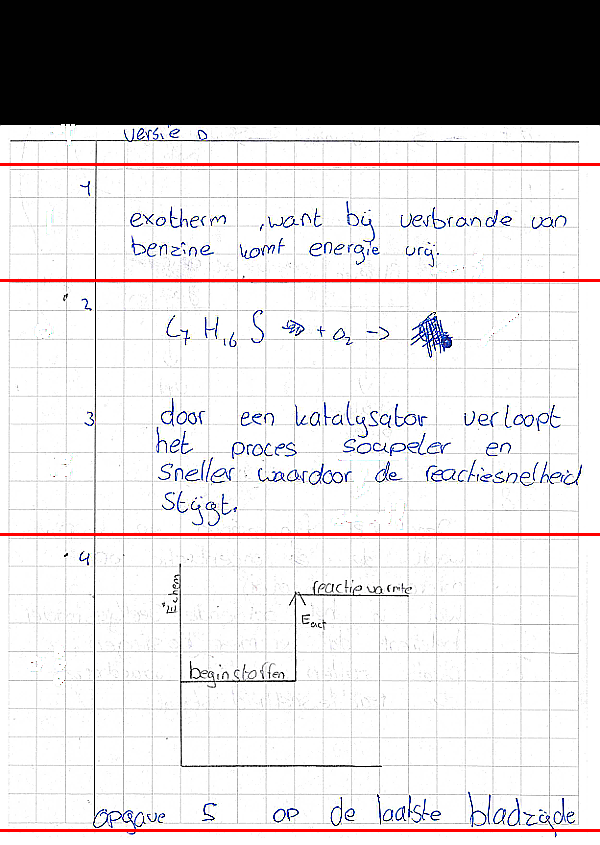 versie D
1
exotherm , want bij verbrande van
benzine komt energie vrij.
2
C7 H16 S + O2 ->
3
door een katalysator verloopt
het proces soupeler en
sneller waardoor de reactiesnelheid
stijgt.
4
Echem
reactiewarmte
Eact
beginstoffen
opgave 5 op de laatste bladzijde